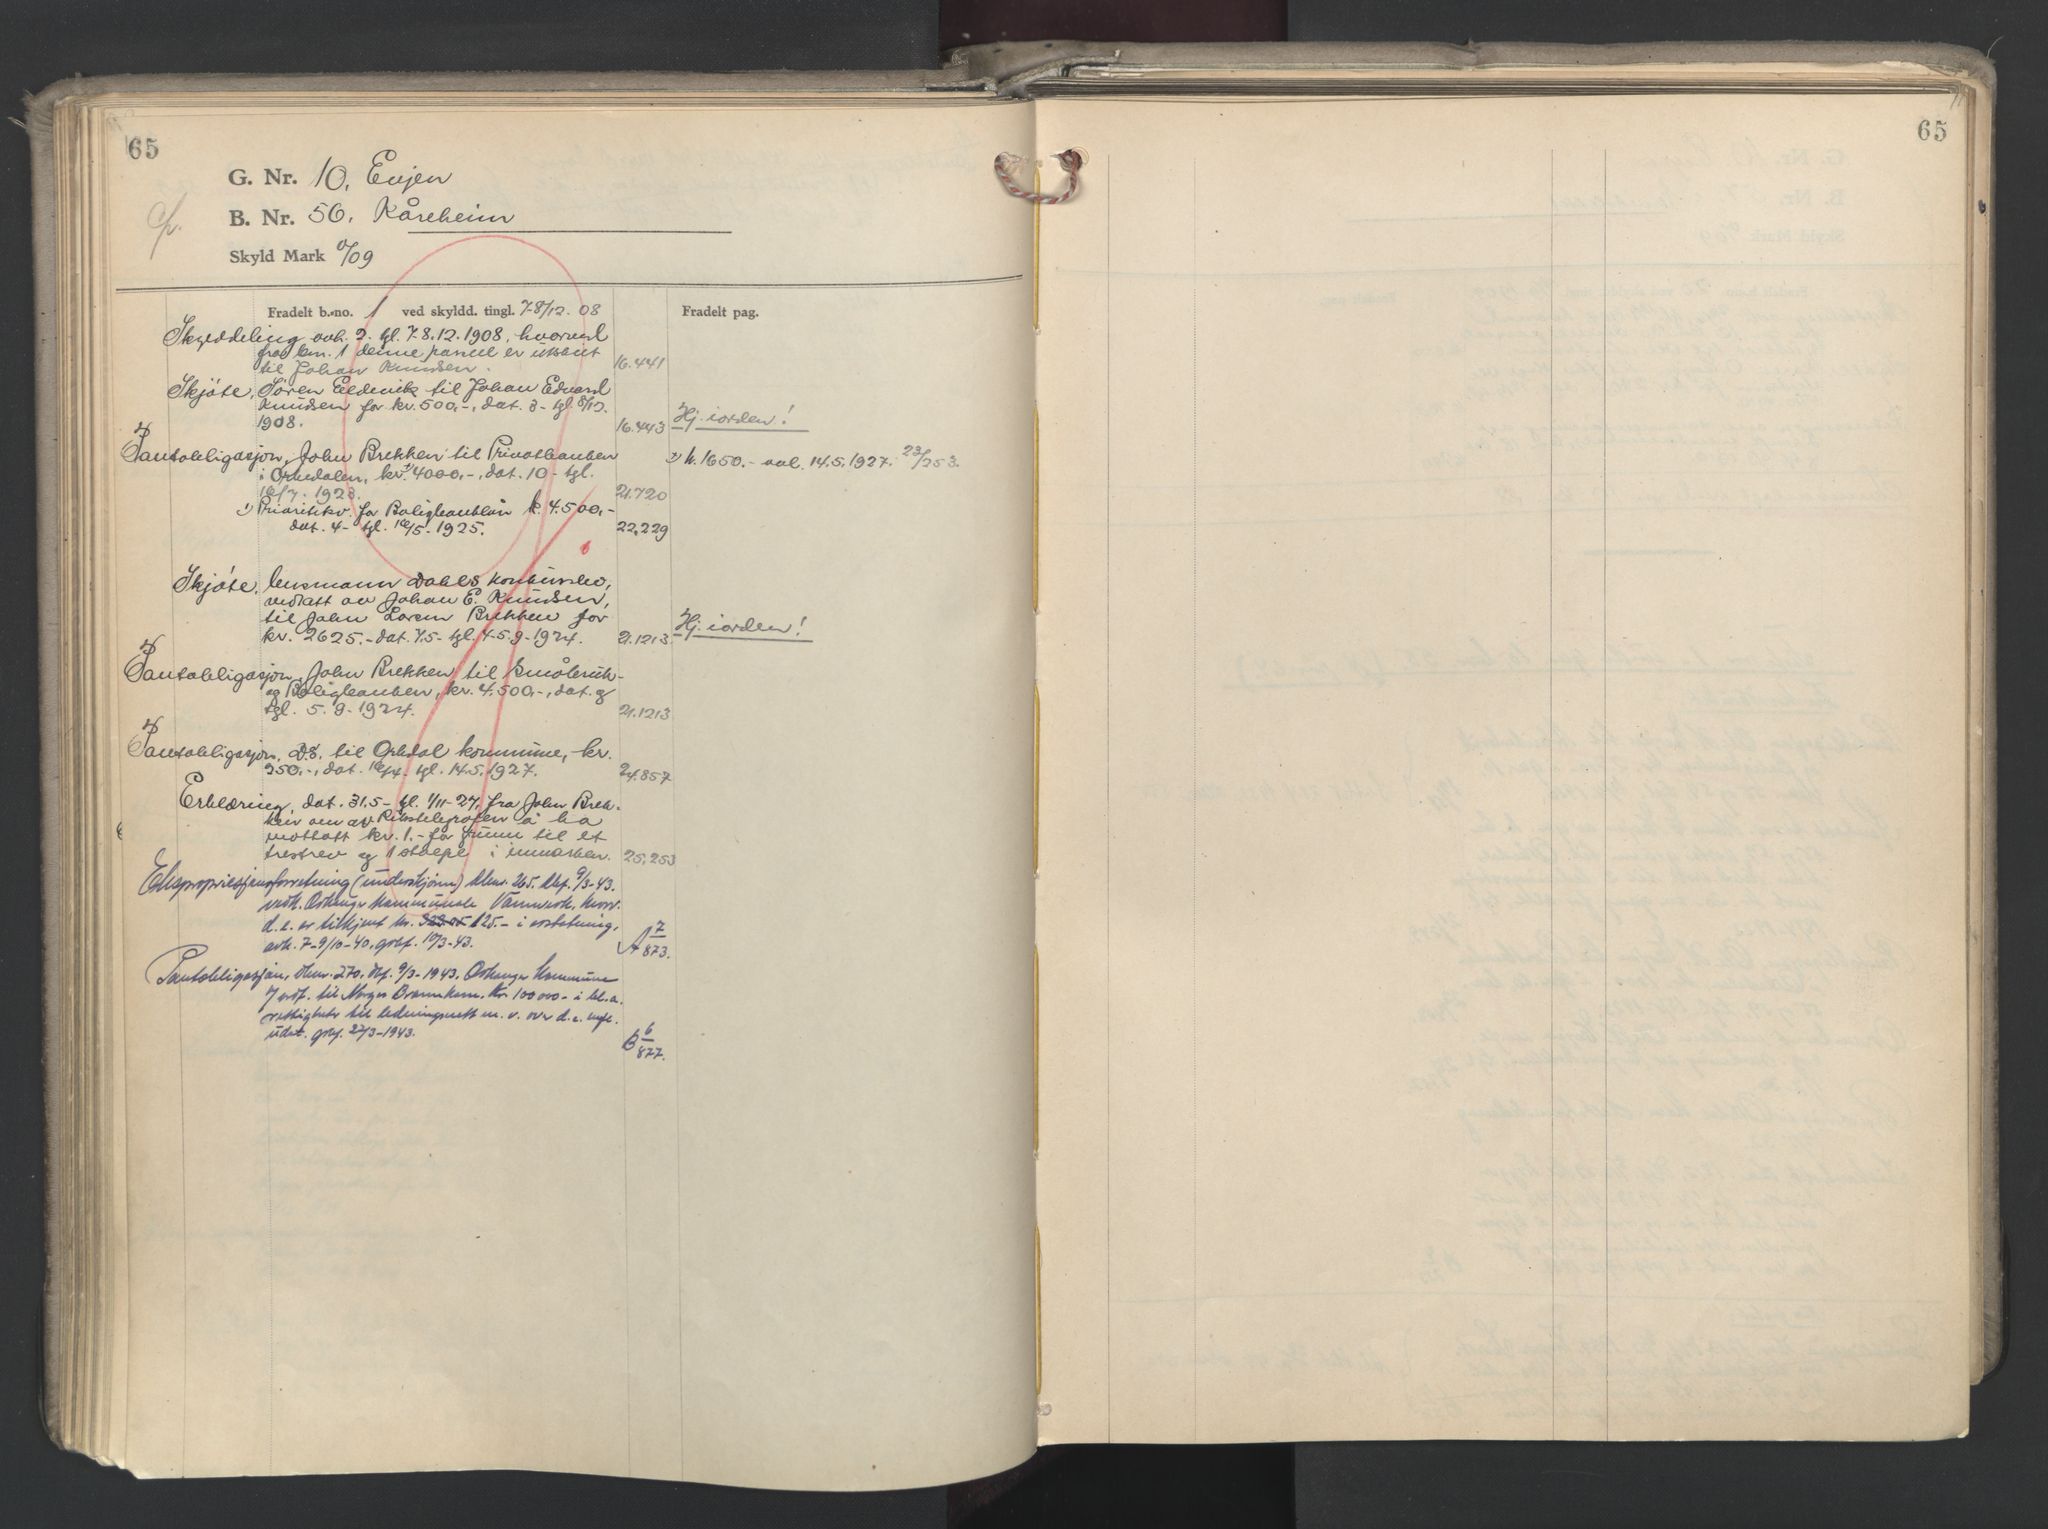 65
G. Nr. 10, Evjen
B. Nr. 56. Kåreheim
Skyld Mark 0/09
Fradelt b.-no. 1 ved skyldd. tingl. 7-8/12. 08
Fradelt pag.
Skylddeling avh. 2. tgl. 7-8.12.1908, hvorved
fra bnr. 1 denne parsel er utskut
til Johan Knudsen.
16.441
Skjøte, Søren til Johan Edvard
Knudsen for kr. 500,-, dat. 3- tgl. 8/12.
1908.
16.443
Hj. i orden!
Pantobligasjon, John Brekken til Privatbanken
i Orkedalen, kr. 1) 4000,-, dat. 10- tgl.
16/7. 1923.
21.720
1) kr. 1650.- avl. 14.5.1927. 23/253.
1) Prioritetsv. for Boligbanklån kr. 4.500,-
dat. 4- tgl. 16/5. 1925.
22.229
Skjøte, lensmann Dahls konkursbo,
vedtatt av Johan E. Knudsen,
til John Lorem Brekken for
kr. 2625.- dat. 7.5- tgl. 4-5.9-1924.
21.1213
Hj. i orden!
Pantobligasjon, John Brekken til Småbruk-
og Boligbanken, kr. 4.500,-, dat. og
tgl. 5.9-1924.
21.1213
Pantobligasjon, D.s. til Orkdal kommune, kr.
350,-, dat. 16/4- tgl. 14.5.1927.
24.857
Erklæring, dat. 31.5- tgl. 1/11-27, fra John Brek-
ken om av Rikstelegrafen å ha
mottatt kr. 1.- for grunn til et
trestrev og 1 stolpe i innmarken.
25.253
Ekspropriasjonsforretning (underskjønn) dknr. 265. dbf. 9/3-43.
vedk. Orkanger kommunale Vannverk, hvor
d.e. er tilkjent kr. 125.- i erstatning,
avh. 7-9/10-40, grbf. 10/3-43.
A 7/873.
Pantobligasjon, dknr. 270. dbf. 9/3-1943. Orkanger kommune
v/ordf. til Norges Brannkasse. kr. 100000- i bl.a.
rettigheter til ledningsnett m.v. over d.e. mfl.
udat. grbf. 27/3-1943.
B 6/877.
65